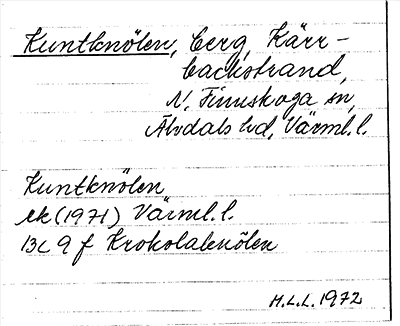 Kuntknölen, berg, Kärr-
backstrand,
N. Finnskoga sn,
Älvdals hd, Värml. l.
Kuntknölen
ek (1971) Värml. l.
13c 9 f Krokolaknölen
H.L.L. 1972